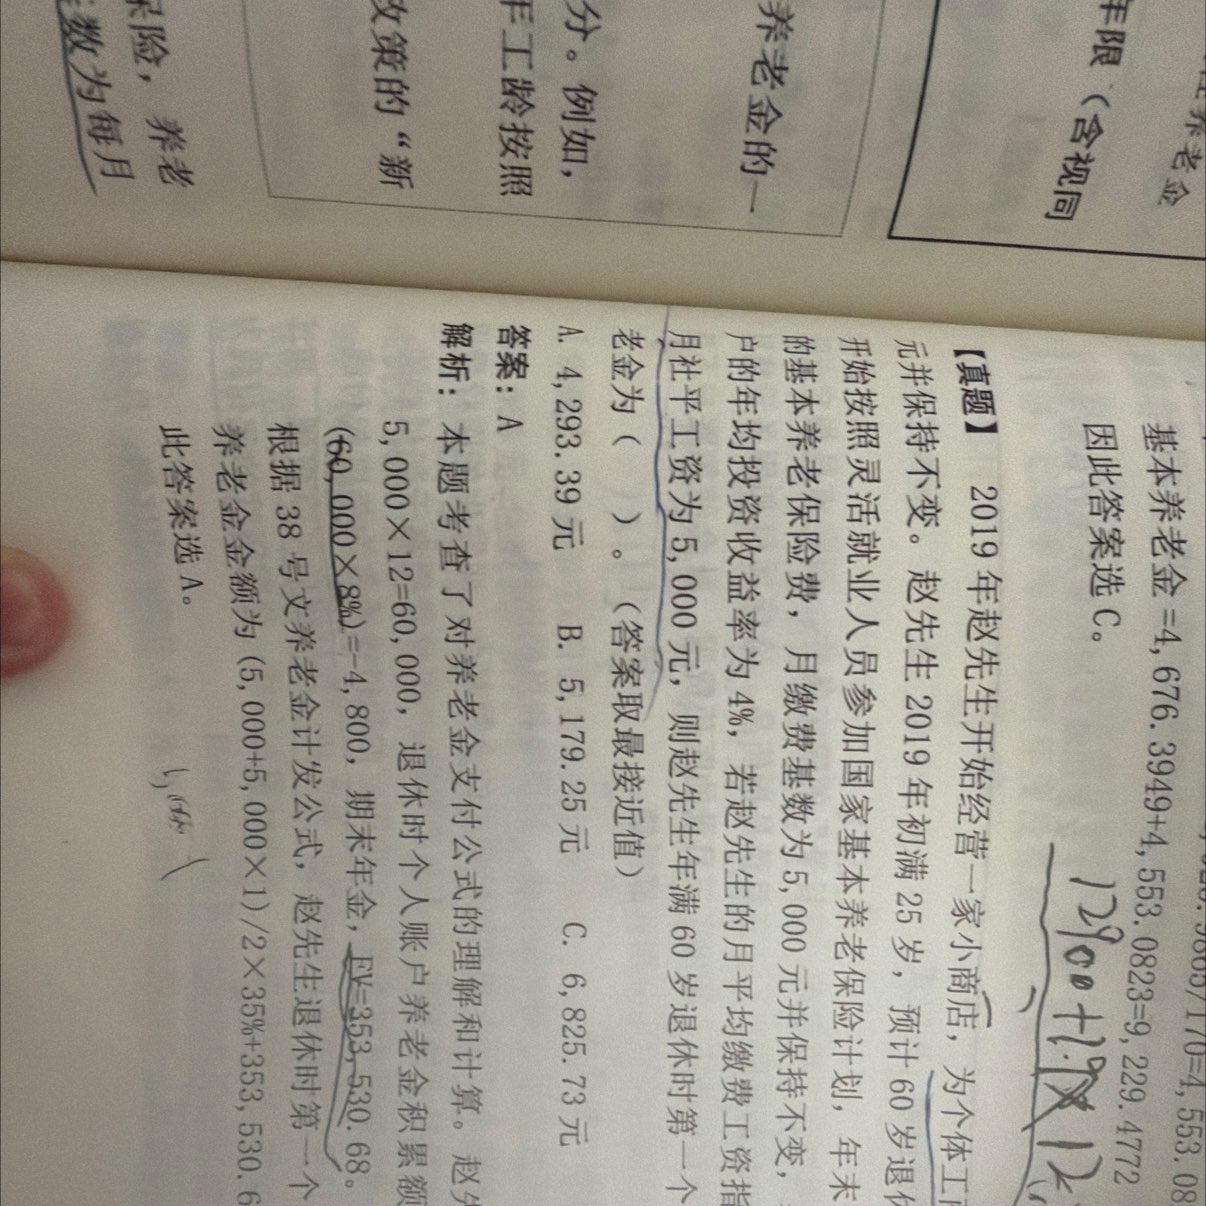 年限（含视同
养老金的一
分。例如，
年工龄按照
政策的“新
保险，养老
数为每月
基本养老金=4,676.3949+4,553.0823=9,229.4772
因此答案选 C。
12900+1.9
【真题】 2019 年赵先生开始经营一家小商店，为个体工
元并保持不变。赵先生 2019 年初满 25 岁，预计 60 岁退休
开始按照灵活就业人员参加国家基本养老保险计划，年末
的基本养老保险费，月缴费基数为 5,000 元并保持不变，
户的年均投资收益率为 4%，若赵先生的月平均缴费工资指
月社平工资为 5,000 元，则赵先生年满 60 岁退休时第一个
老金为（ ）。（答案取最接近值）
A. 4,293.39 元 B. 5,179.25 元 C. 6,825.73 元
答案：A
解析：本题考查了对养老金支付公式的理解和计算。赵先
5,000×12=60,000，退休时个人账户养老金积累额
(60,000×8%)=-4,800，期末年金，FV=353,530.68。
根据 38 号文养老金计发公式，赵先生退休时第一个
养老金金额为 (5,000+5,000×1)/2×35%+353,530.6
此答案选 A。